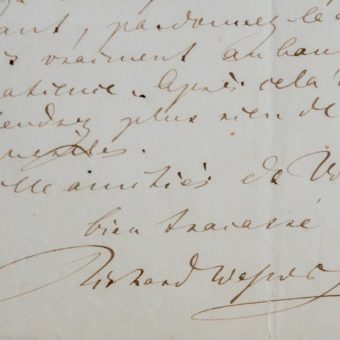 ant, pardonnez le
vraiment au bou
patience. Après cela
plus rien de
Mille amitiés de Vo
bien tracassé
Richard Wagner